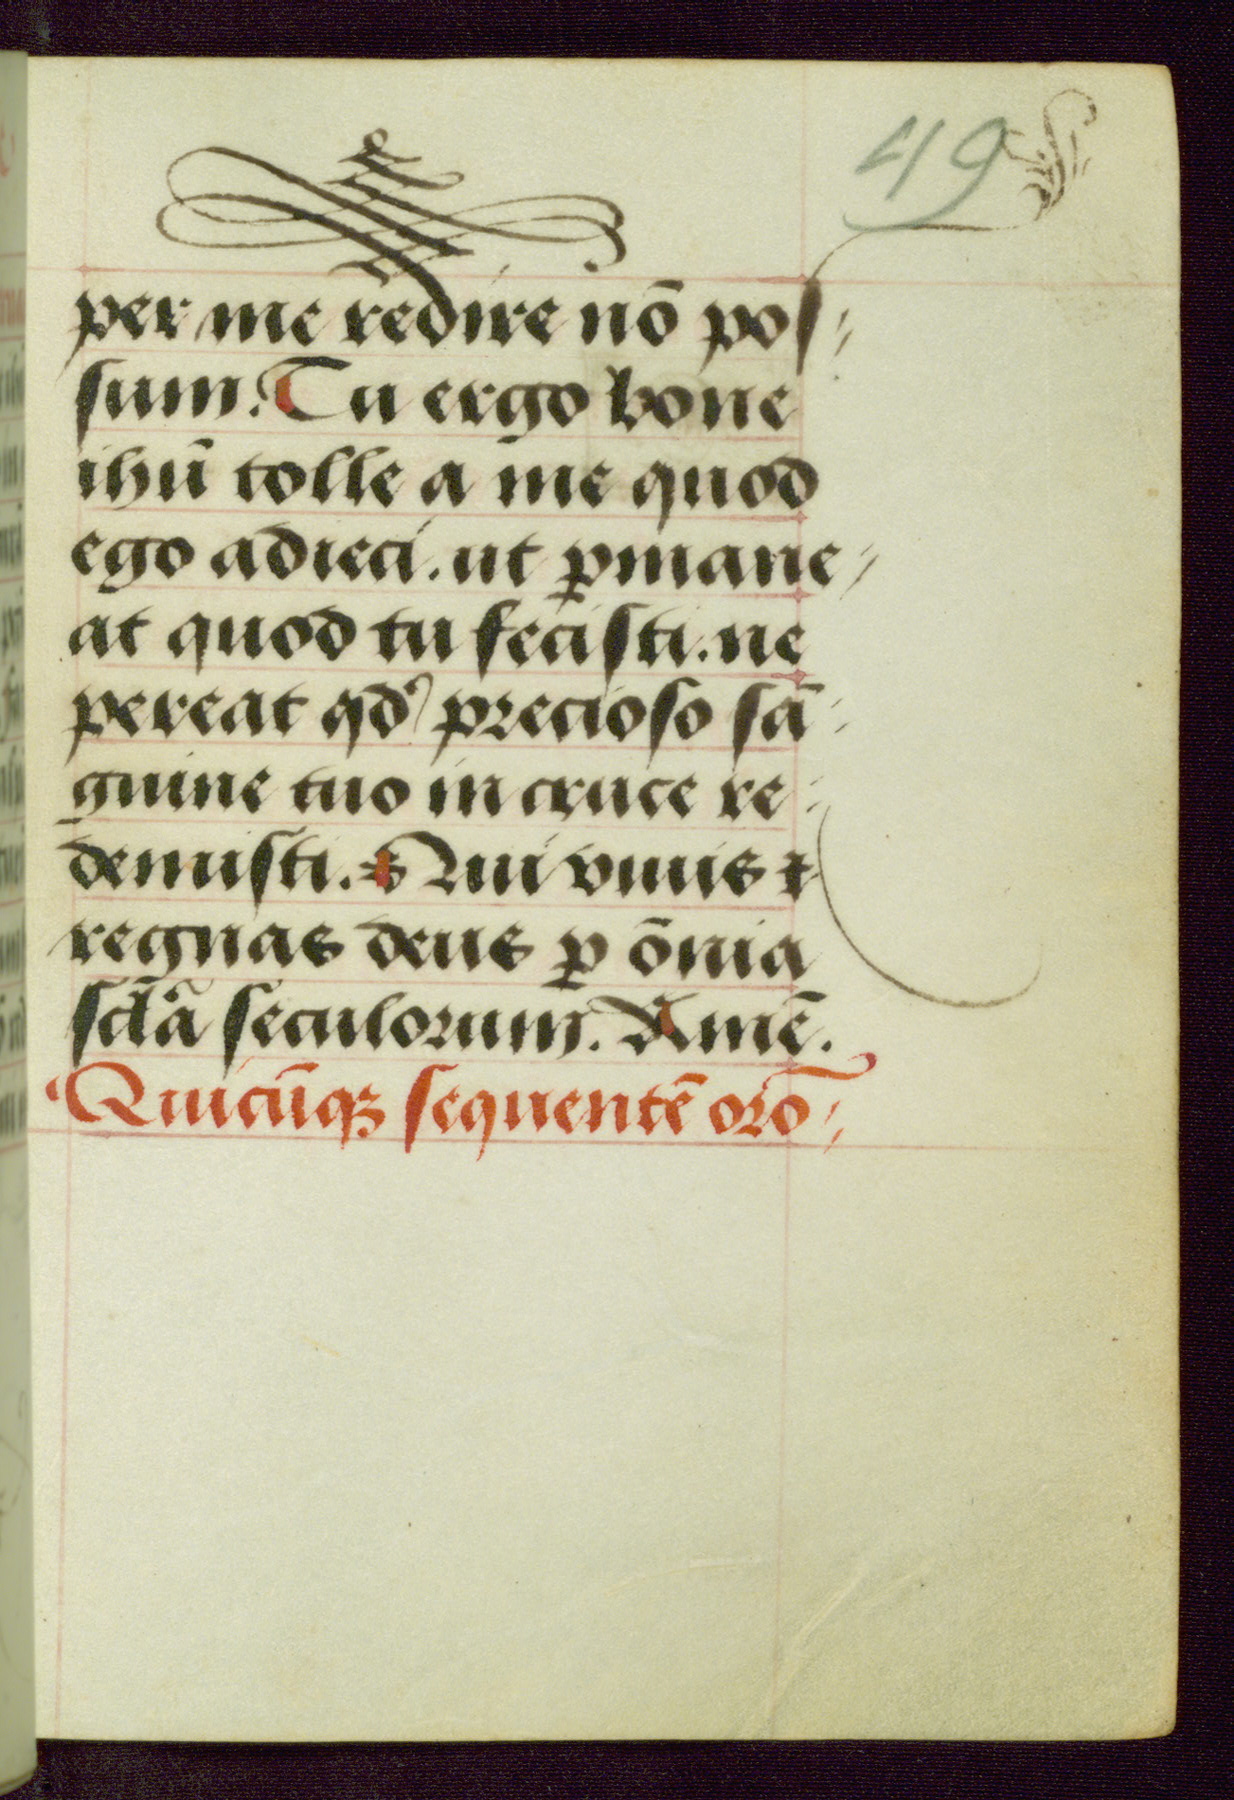 49
per me redire nō pos⸗
sum. Tu ergo bone
ihū tolle a me quod
ego adieci. ut ꝑmane⸗
at quod tu fecisti. ne
pereat qd᷒ precioso sā⸗
guine tuo in cruce re⸗
demisti. Qui viuis ⁊
regnas deus ꝑ ōnia
sclā seculorum. Amē.
Quicūqꝫ sequentē orō⸗